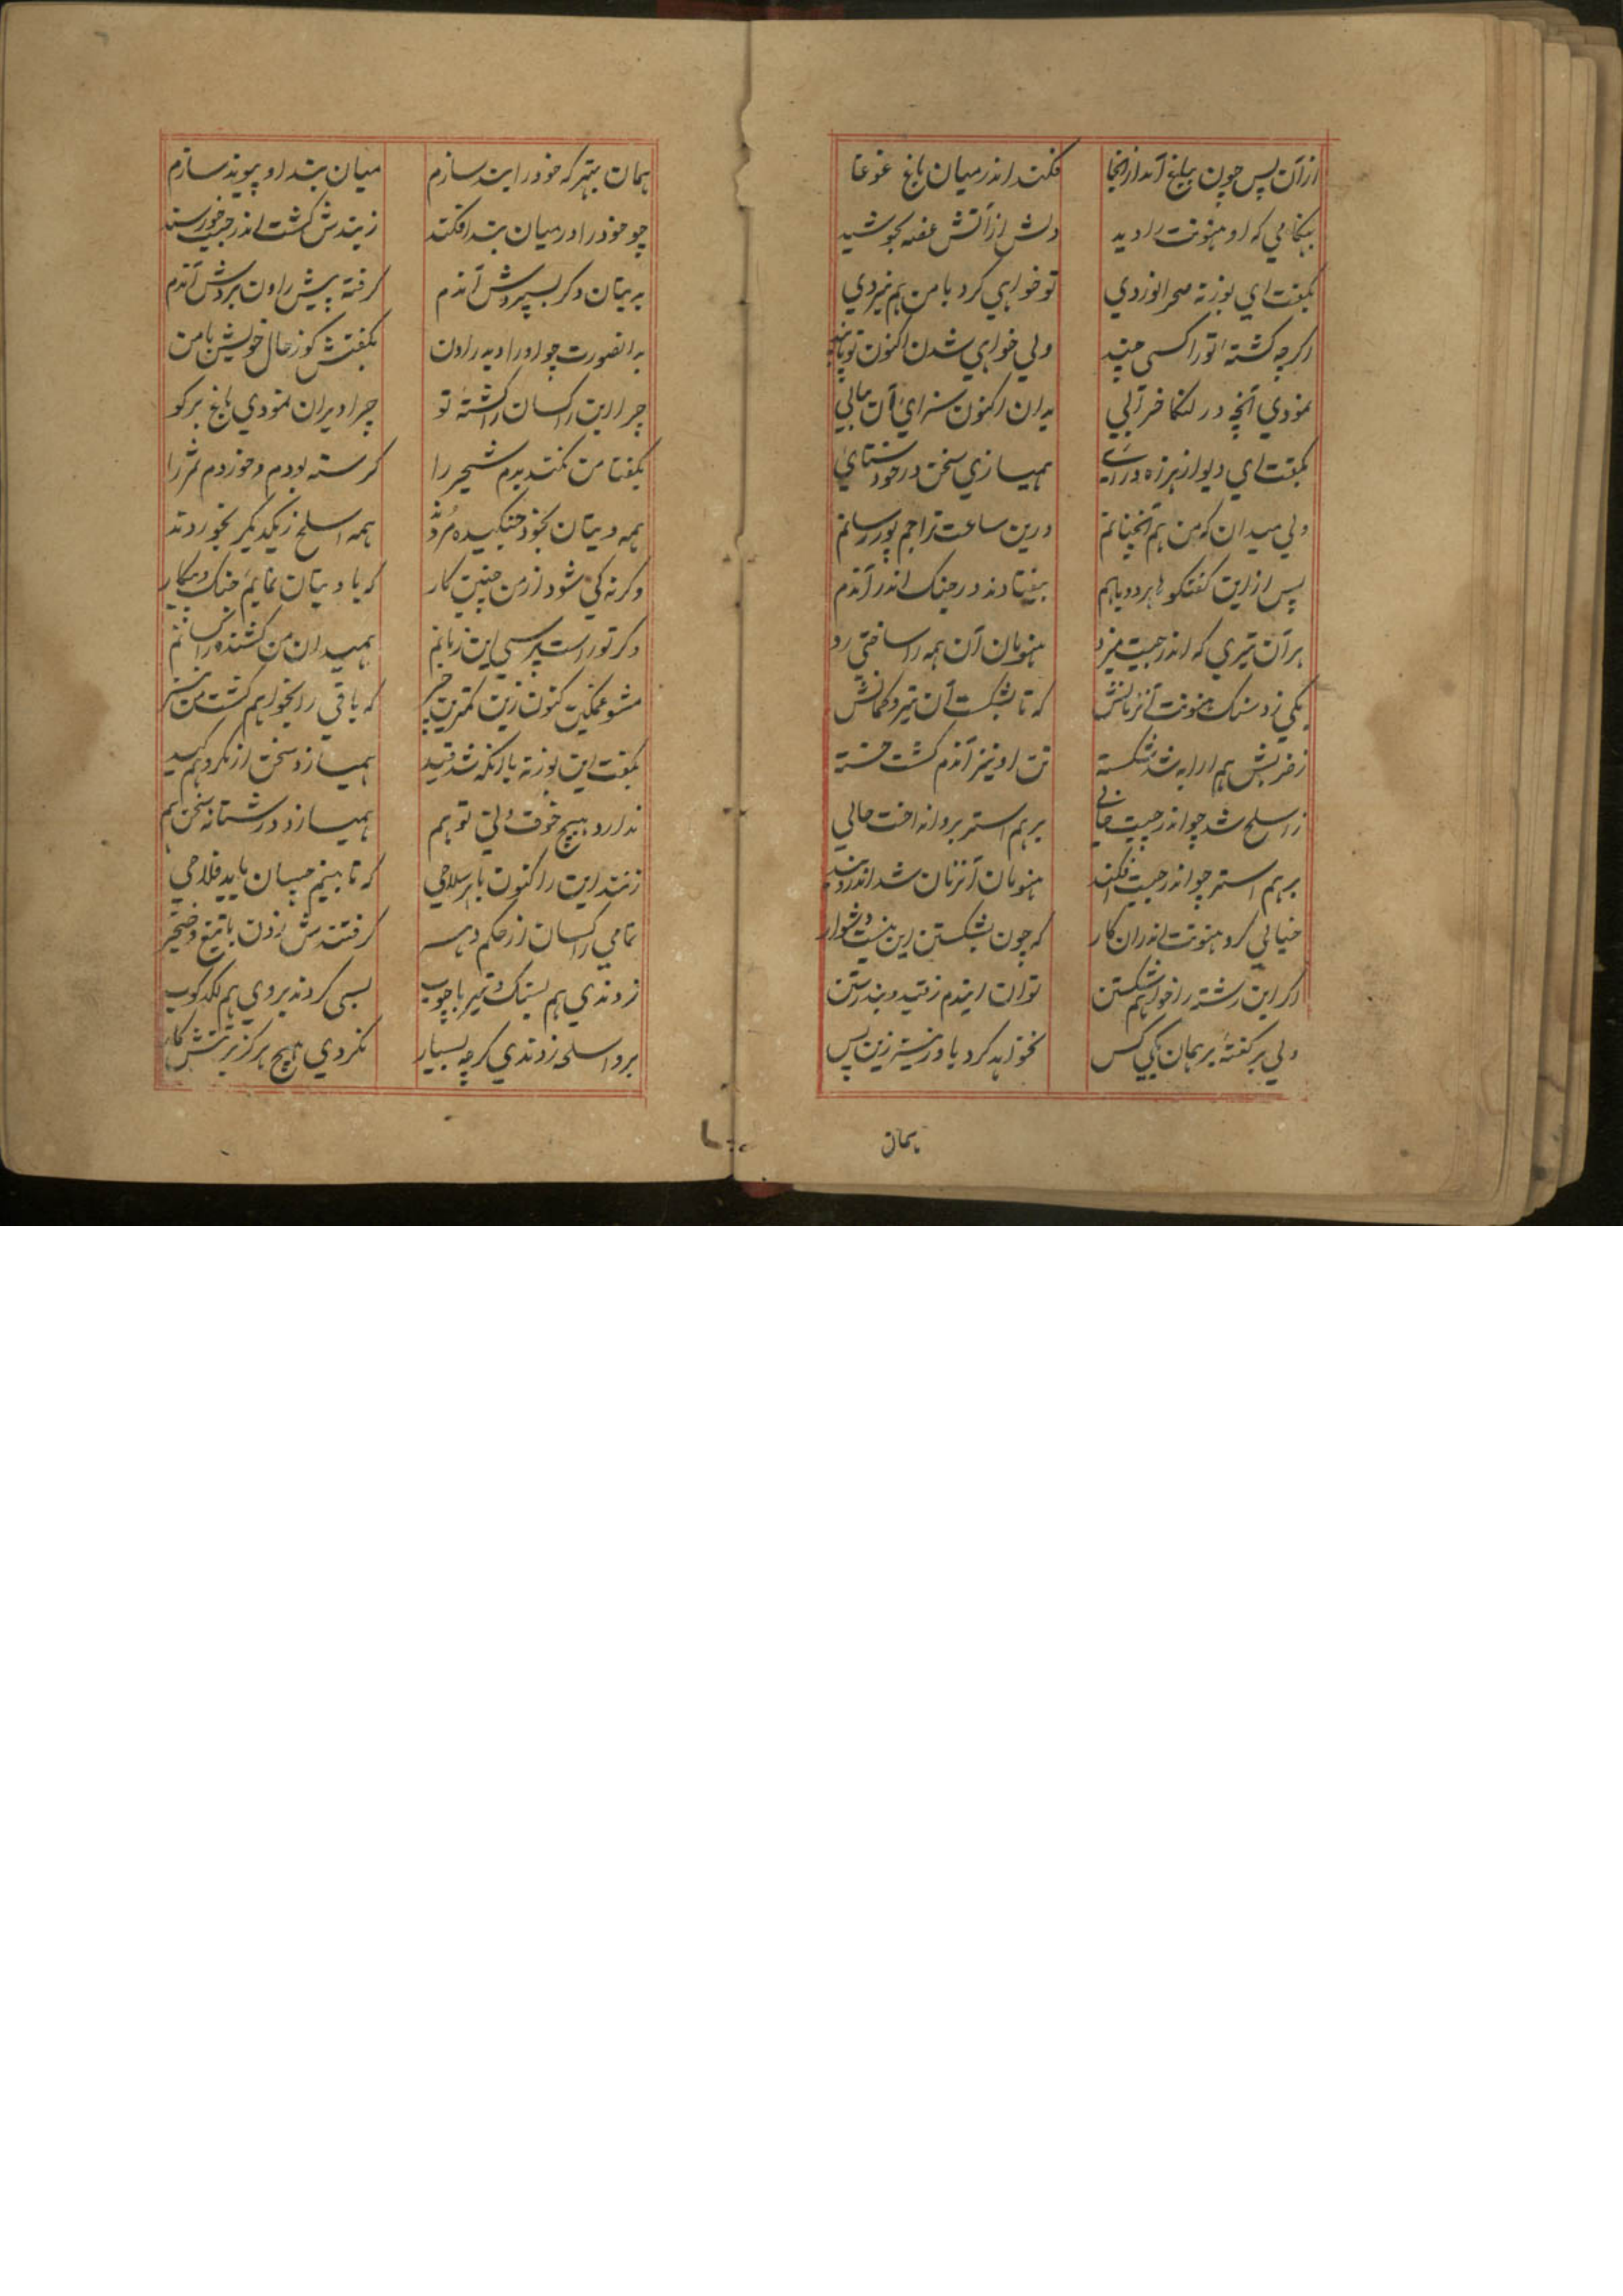 ازآن پس چون بباغ آمد ازانجا فکند اندر میان باغ غوغا
بهنکامی که او هنونت را دید دلش از آتش غصه بجوشید
بکفت ای بوزنه صحرا نوردی تو خواهی کرد با من هم نبردی
اکرچه کشتهٔ تو راکسی چند ولی خواهی شدن اکنون تو پابند
نمودی آنچه در لنکا خرابی بدان اکنون سزای آن بیابی
بکفت ای دیو از هرزه درائی همیسازی سخن در خودستائی
ولی میدان که من هم آنچنانم درین ساعت ترا جم پور رسانم
پس از این کفتکو هر دو باهم بیفتادند در جنک اندر آندم
هر آن تیری که اندرجیت میزد هنومان آن همه را ساختی رد
یکی زد سنک هنونت آنزمانش که تا بشکست آن تیر و کمانش
ز ضربش هم ارابه شد شکسته تن او نیز آندم کشت خسته
ز اسلح شد چو اندرجیت خالی برهم استر برو انداخت حالی
برهم استر چو اندرجیت افکند هنومان آنزمان شد اندرو بند
خیالی کرد هنونت اندران کار که چون بشکستن این نیست دشوار
اکر این رشته را خواهم شکستن توان ایندم ز قید و بند رستن
ولی بر کفتهٔ برهمان یکی کس نخواهد کرد باور نیز زین پس
بهمان
همان بهتر که خود را بند سازم میان بند او پیوند سازم
چو خود را در میان بند افکند ز بندش کشت اندرجیت خورسند
به بیتان دکر بسپردش آندم کرفته پیش راون بردش آندم
بدانصورت چو او را دید راون بکفتش کو ز حال خویش با من
چرا این راکسان را کشتهٔ تو چرا ویران نمودی باغ برکو
بکفتا من نکندیدم شجر را کرسنه بودم و خوردم ثمر را
همه دیتان بخود جنکیده مردند همه اسلح ز یکدیکر بخوردند
وکرنه کی شود از من چنین کار که با دیتان نمایم جنک و پیکار
وکر تو راست پرسی این زبانم همیدان من کشنده راکسانم
مشو غمکین کنون زین کمترین چیز که باقی را بخواهم کشت من نیز
بکفت این بوزنه با آنکه شد قید همیسازد سخن از مکر و هم کید
ندارد هیچ خوف دلتی تو هم همیسازد درشتانه سخن هم
زنند این را کنون با هر سلاحی که تا بینم چسان یابد فلاحی
تمامی راکسان از حکم دهسر کرفتندش زدن با تیغ و خنجر
زدندی هم بسنک و تیر با چوب بسی کردند بروی هم لکدکوب
برو اسلحه زدندی کرچه بسیار نکردی هیچ هرکز بر تنش کار